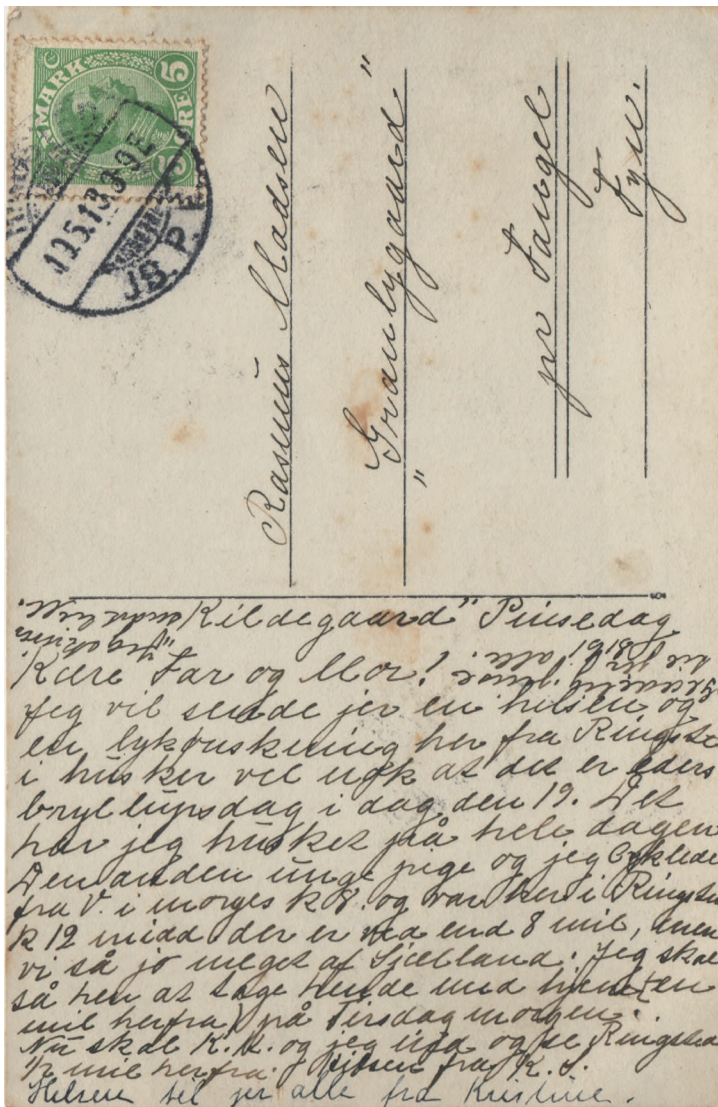 DANMARK
5 ØRE 5
19.5.18 8-9 E
JB. P. E.
Rasmus Madsen
"Granlygaard"
pr Fangel
Fyn.
"Kildegaard" Pinsedag
1918
Kære Far og Mor!
Jeg vil sende jer en hilsen og
en lykønskning her fra Ringste
i husker vel nok at det er eders
bryllupsdag i dag den 19. Det
har jeg husket på hele dagen
Den anden unge pige og jeg Cyklede
fra V. i morges k 8. og var her i Ringste
k 12 midd der er ved end 8 mil, men
vi så jo meget af Sjælland. Jeg skal
så hen at tage hende med hjem (en
mil herfra) på Tirsdag morgen.
Nu skal K. N. og jeg ud og se Ringsted
½ mil herfra. Hilsen fra K. S.
Hilsen til jer alle fra Kristine.